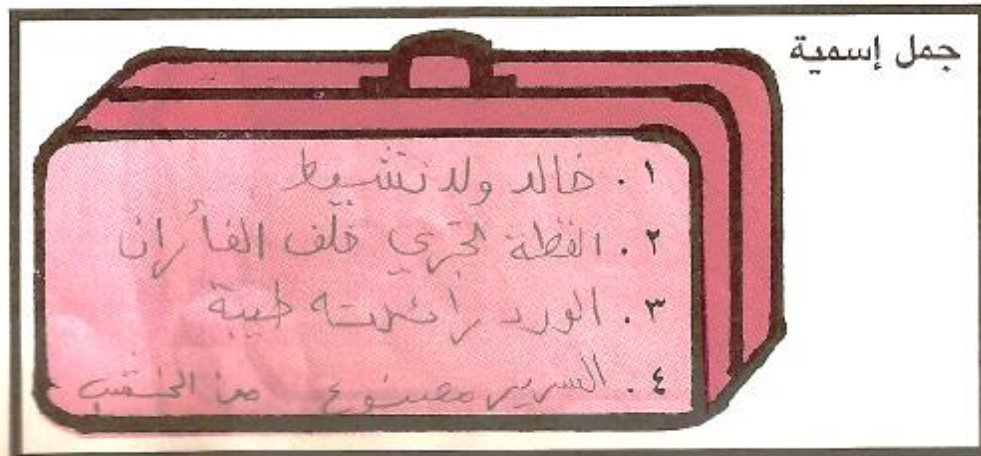 جمل إسمية
١. خالد ولد نشيط
٢. القطة تجري خلف الفأران
٣. الورد رائحته طيبة
٤. السرير مصنوع من الخشب